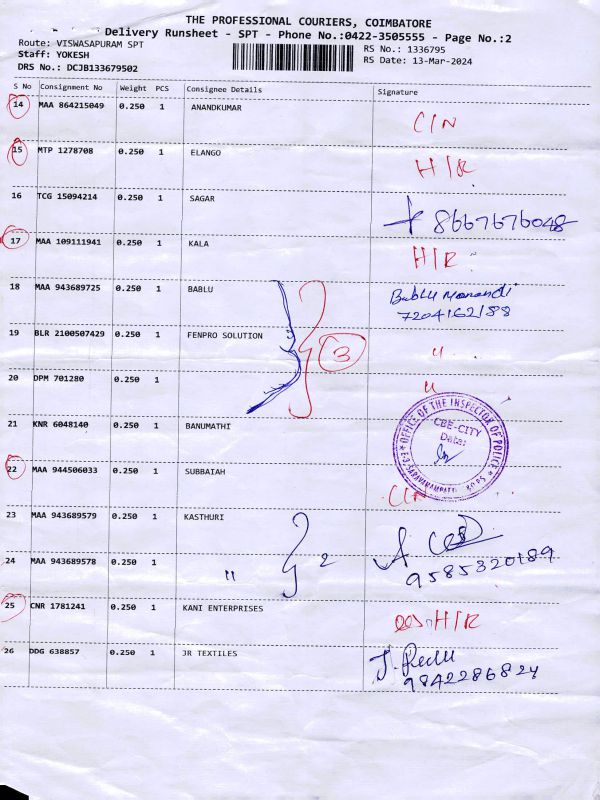 THE PROFESSIONAL COURIERS, COIMBATORE
Delivery Runsheet - SPT - Phone No.:0422-3505555 - Page No.:2
Route: VISWASAPURAM SPT
RS No.: 1336795
Staff: YOKESH
RS Date: 13-Mar-2024
DRS No.: DCJB133679502
S No Consignment No Weight PCS Consignee Details Signature
14 MAA 864215049 0.250 1 ANANDKUMAR C/N
15 MTP 1278708 0.250 1 ELANGO H/R
16 TCG 15094214 0.250 1 SAGAR 8667676048
17 MAA 109111941 0.250 1 KALA H/R
18 MAA 943689725 0.250 1 BABLU Bablu Marandi
7204162188
19 BLR 2100507429 0.250 1 FENPRO SOLUTION 3 "
20 DPM 701280 0.250 1 "
21 KNR 6048140 0.250 1 BANUMATHI
OFFICE OF THE INSPECTOR OF POLICE
CBE-CITY
Date:
22 MAA 944506033 0.250 1 SUBBAIAH C/N
23 MAA 943689579 0.250 1 KASTHURI
24 MAA 943689578 0.250 1 " 2 9585320189
25 CNR 1781241 0.250 1 KANI ENTERPRISES H/R
26 DDG 638857 0.250 1 JR TEXTILES
9842286824